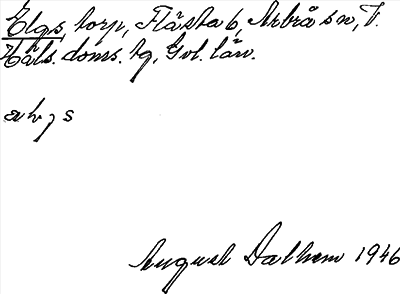 Elgs, torp, Flästa 6, Arbrå sn, V.
Häls. doms. tg, Gvl. län.
August Dalhem 1946